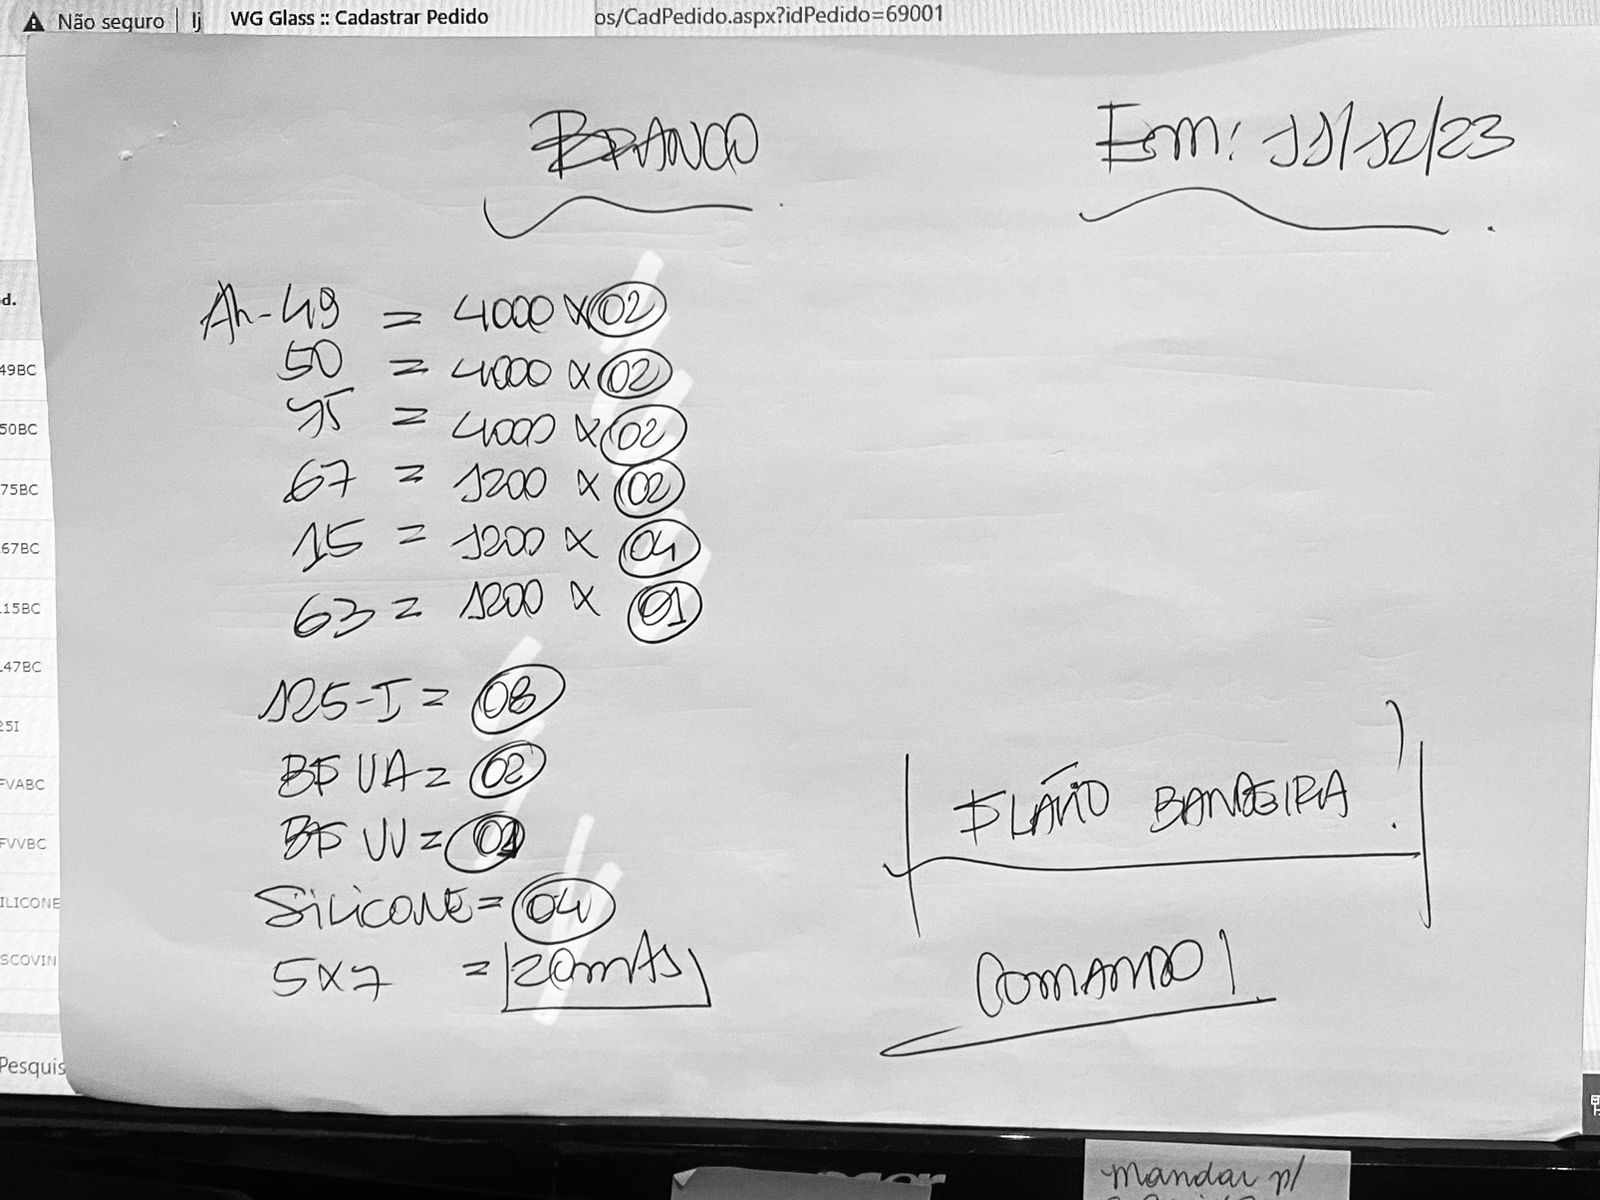 Não seguro | lj
WG Glass :: Cadastrar Pedido
os/CadPedido.aspx?idPedido=69001
BRANCO
Em: 11/12/23
d.
Al-49 = 4000 x 02
50 = 4000 x 02
75 = 4000 x 02
67 = 1200 x 02
15 = 1200 x 04
63 = 1200 x 01
125-I = 08
BF VA = 02
BF VV = 01
SILICONE = 04
5x7 = 20mts
49BC
50BC
75BC
67BC
15BC
47BC
25I
FVABC
FVVBC
ILICONE
SCOVIN
Pesquis
FLÁVIO BANDEIRA!
COMANDO!
Mandar p/